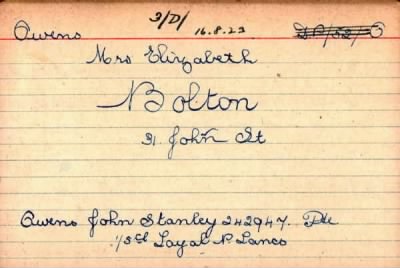 3/D/
Owens 16.8.23
Mrs Elizabeth
Bolton
31 John St
Owens John Stanley 242947. Pte
1/5th Loyal N Lancs